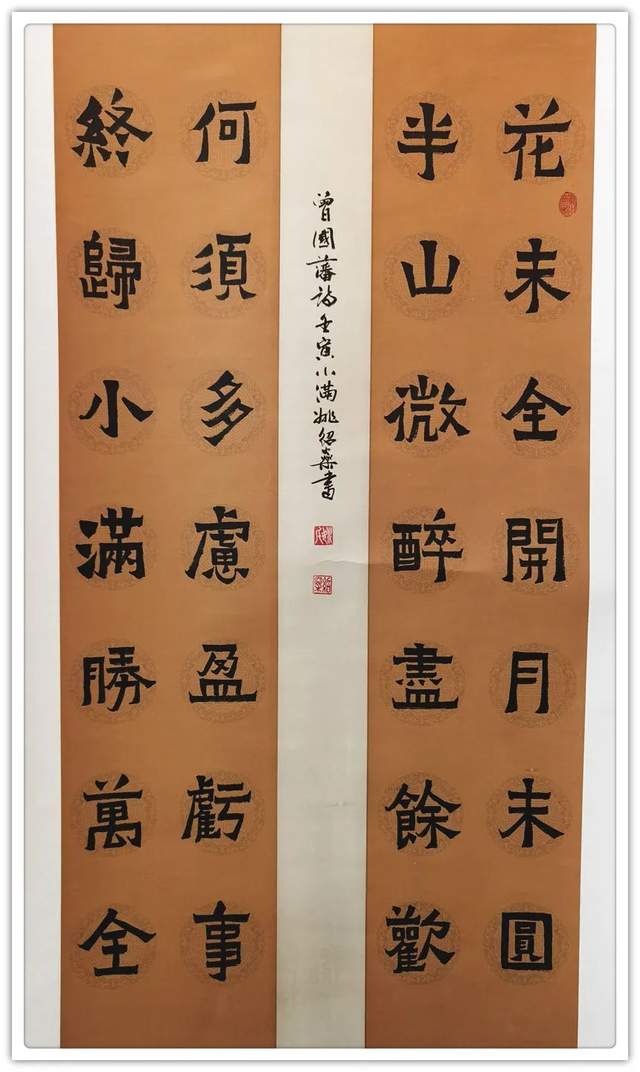 花未全開月未圓
半山微醉盡餘歡
何須多慮盈虧事
終歸小滿勝萬全
曾國藩詩壬寅小滿姚紹燊書